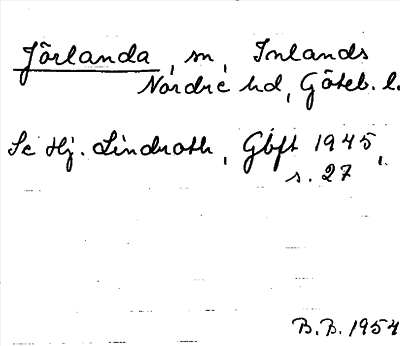 Jörlanda, sn, Inlands
Nordre hd, Göteb. l.
Se Hj. Lindroth, Gbft 1945,
s. 27
B.B. 1954